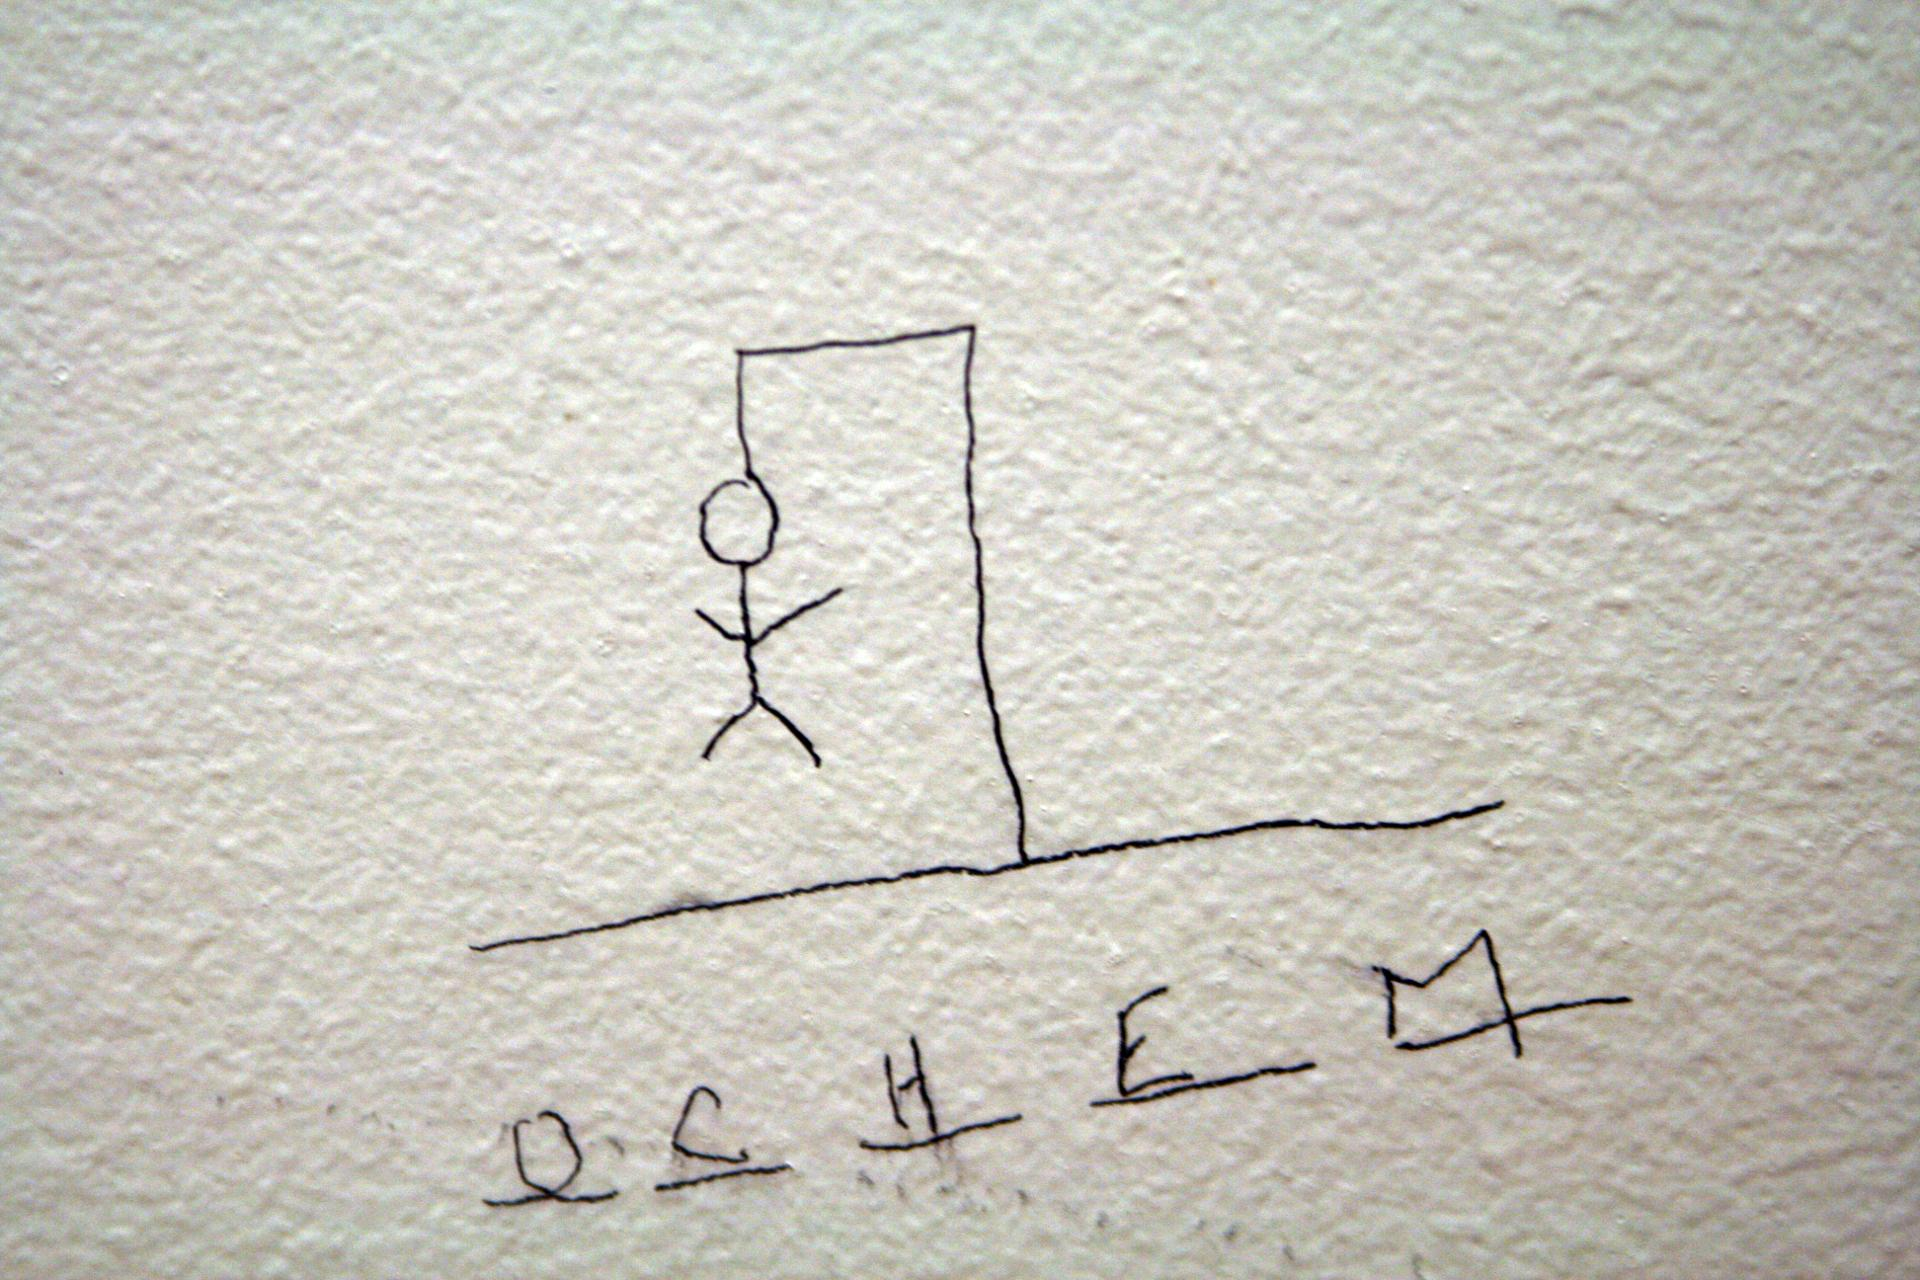 O C H E M